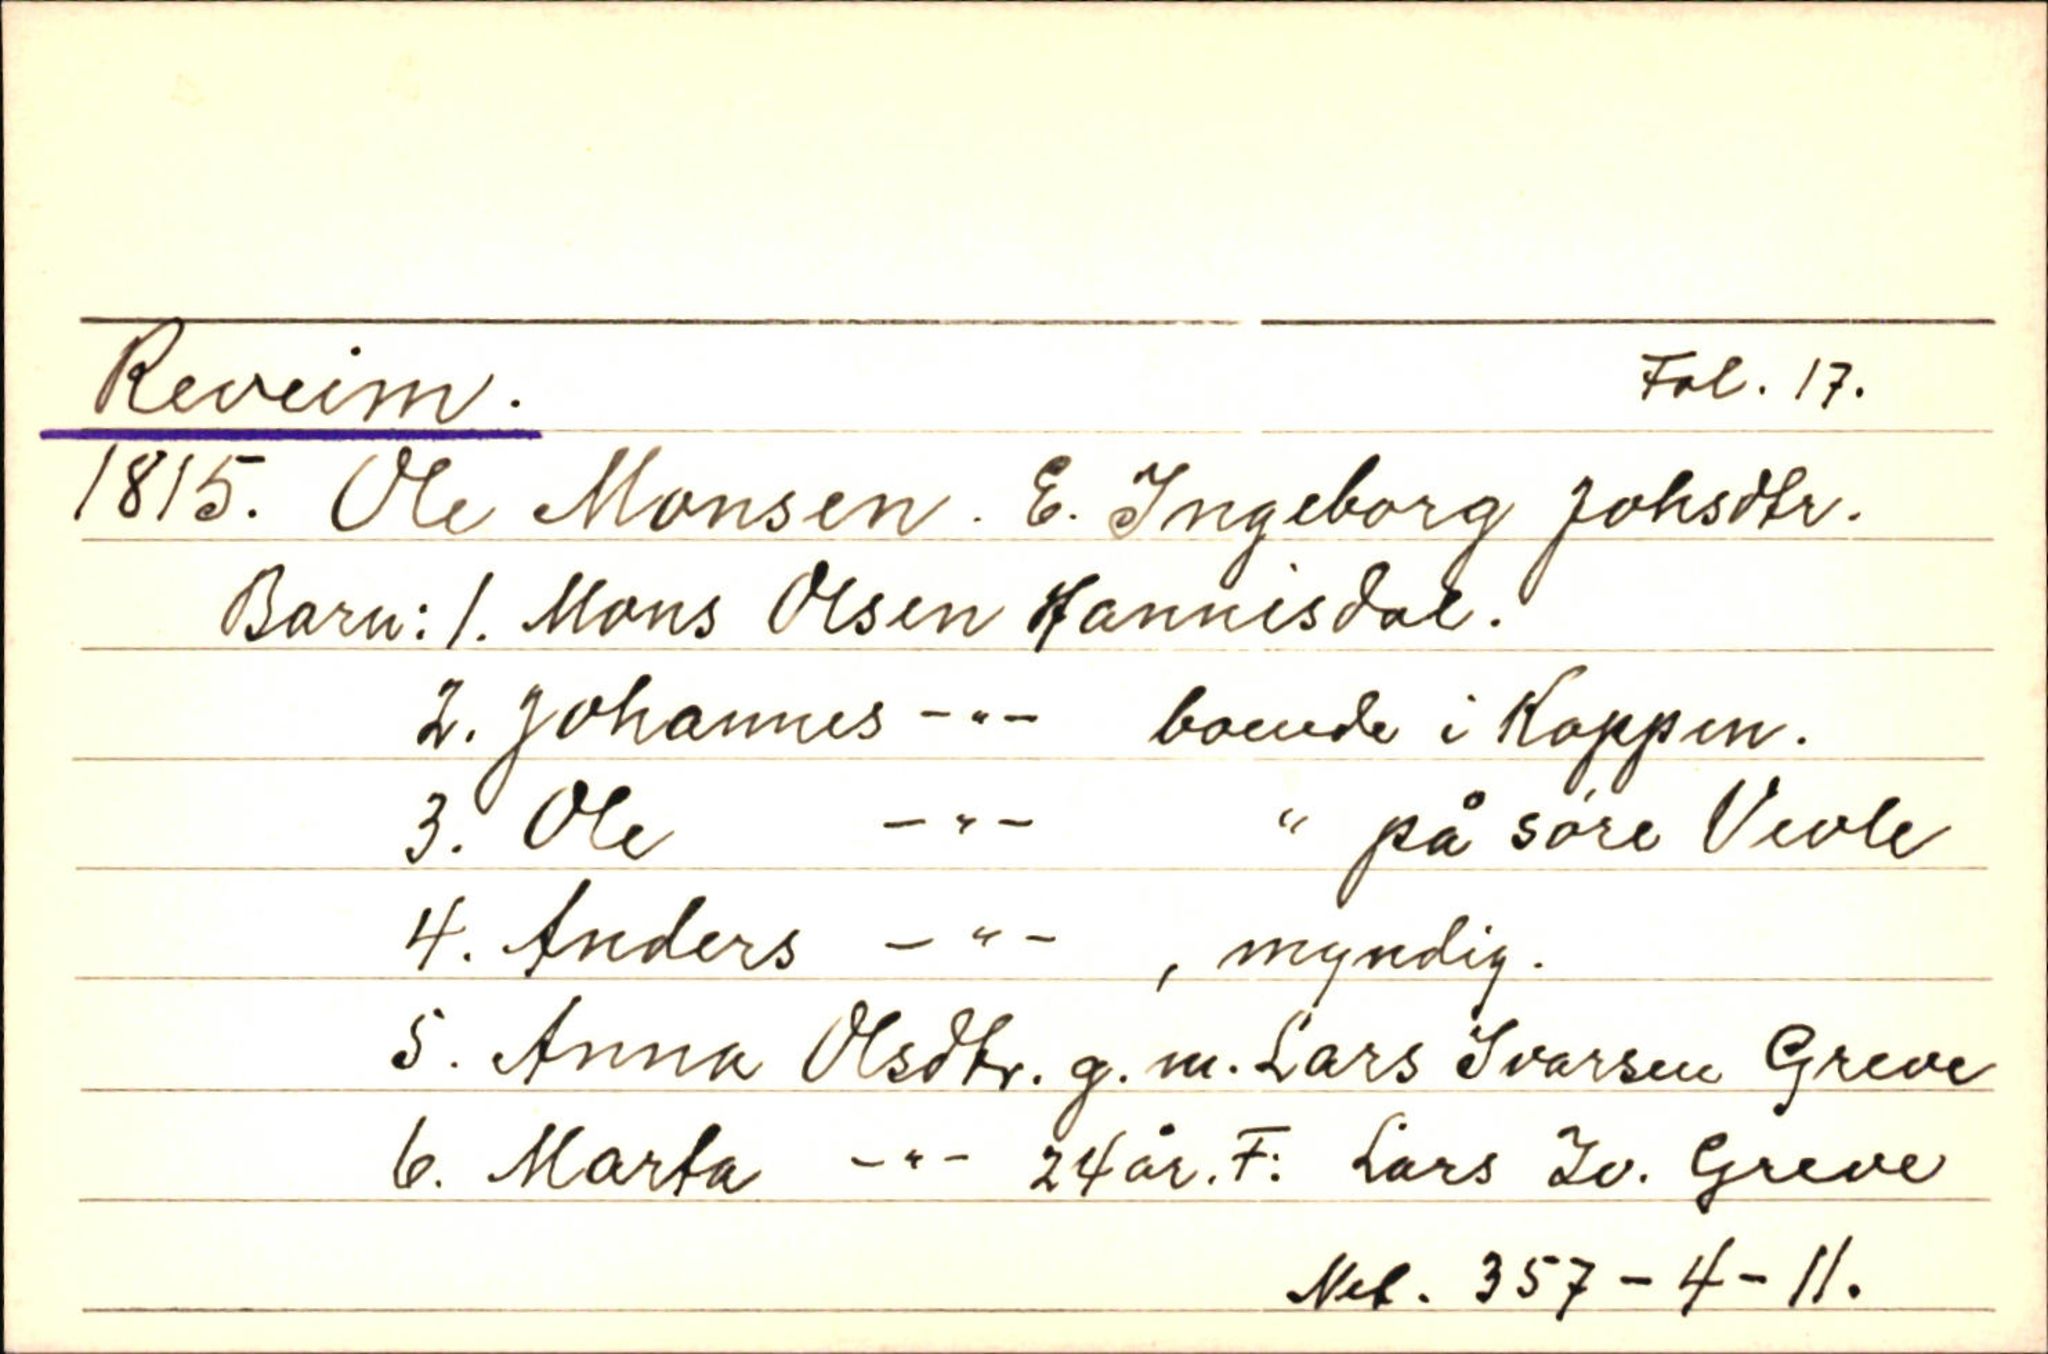 Reveim. Fol. 17.
1815. Ole Monsen. E. Ingeborg Johsdtr.
Barn: 1. Mons Olsen Hannisdal.
2. Johannes -"- boende i Koppen.
3. Ole -"- " på søre Vevle
4. Anders -"- , myndig.
5. Anna Olsdtr. g. m. Lars Ivarsen Greve
6. Marta -"- 24 år. F: Lars Iv. Greve
Net. 357-4-11.